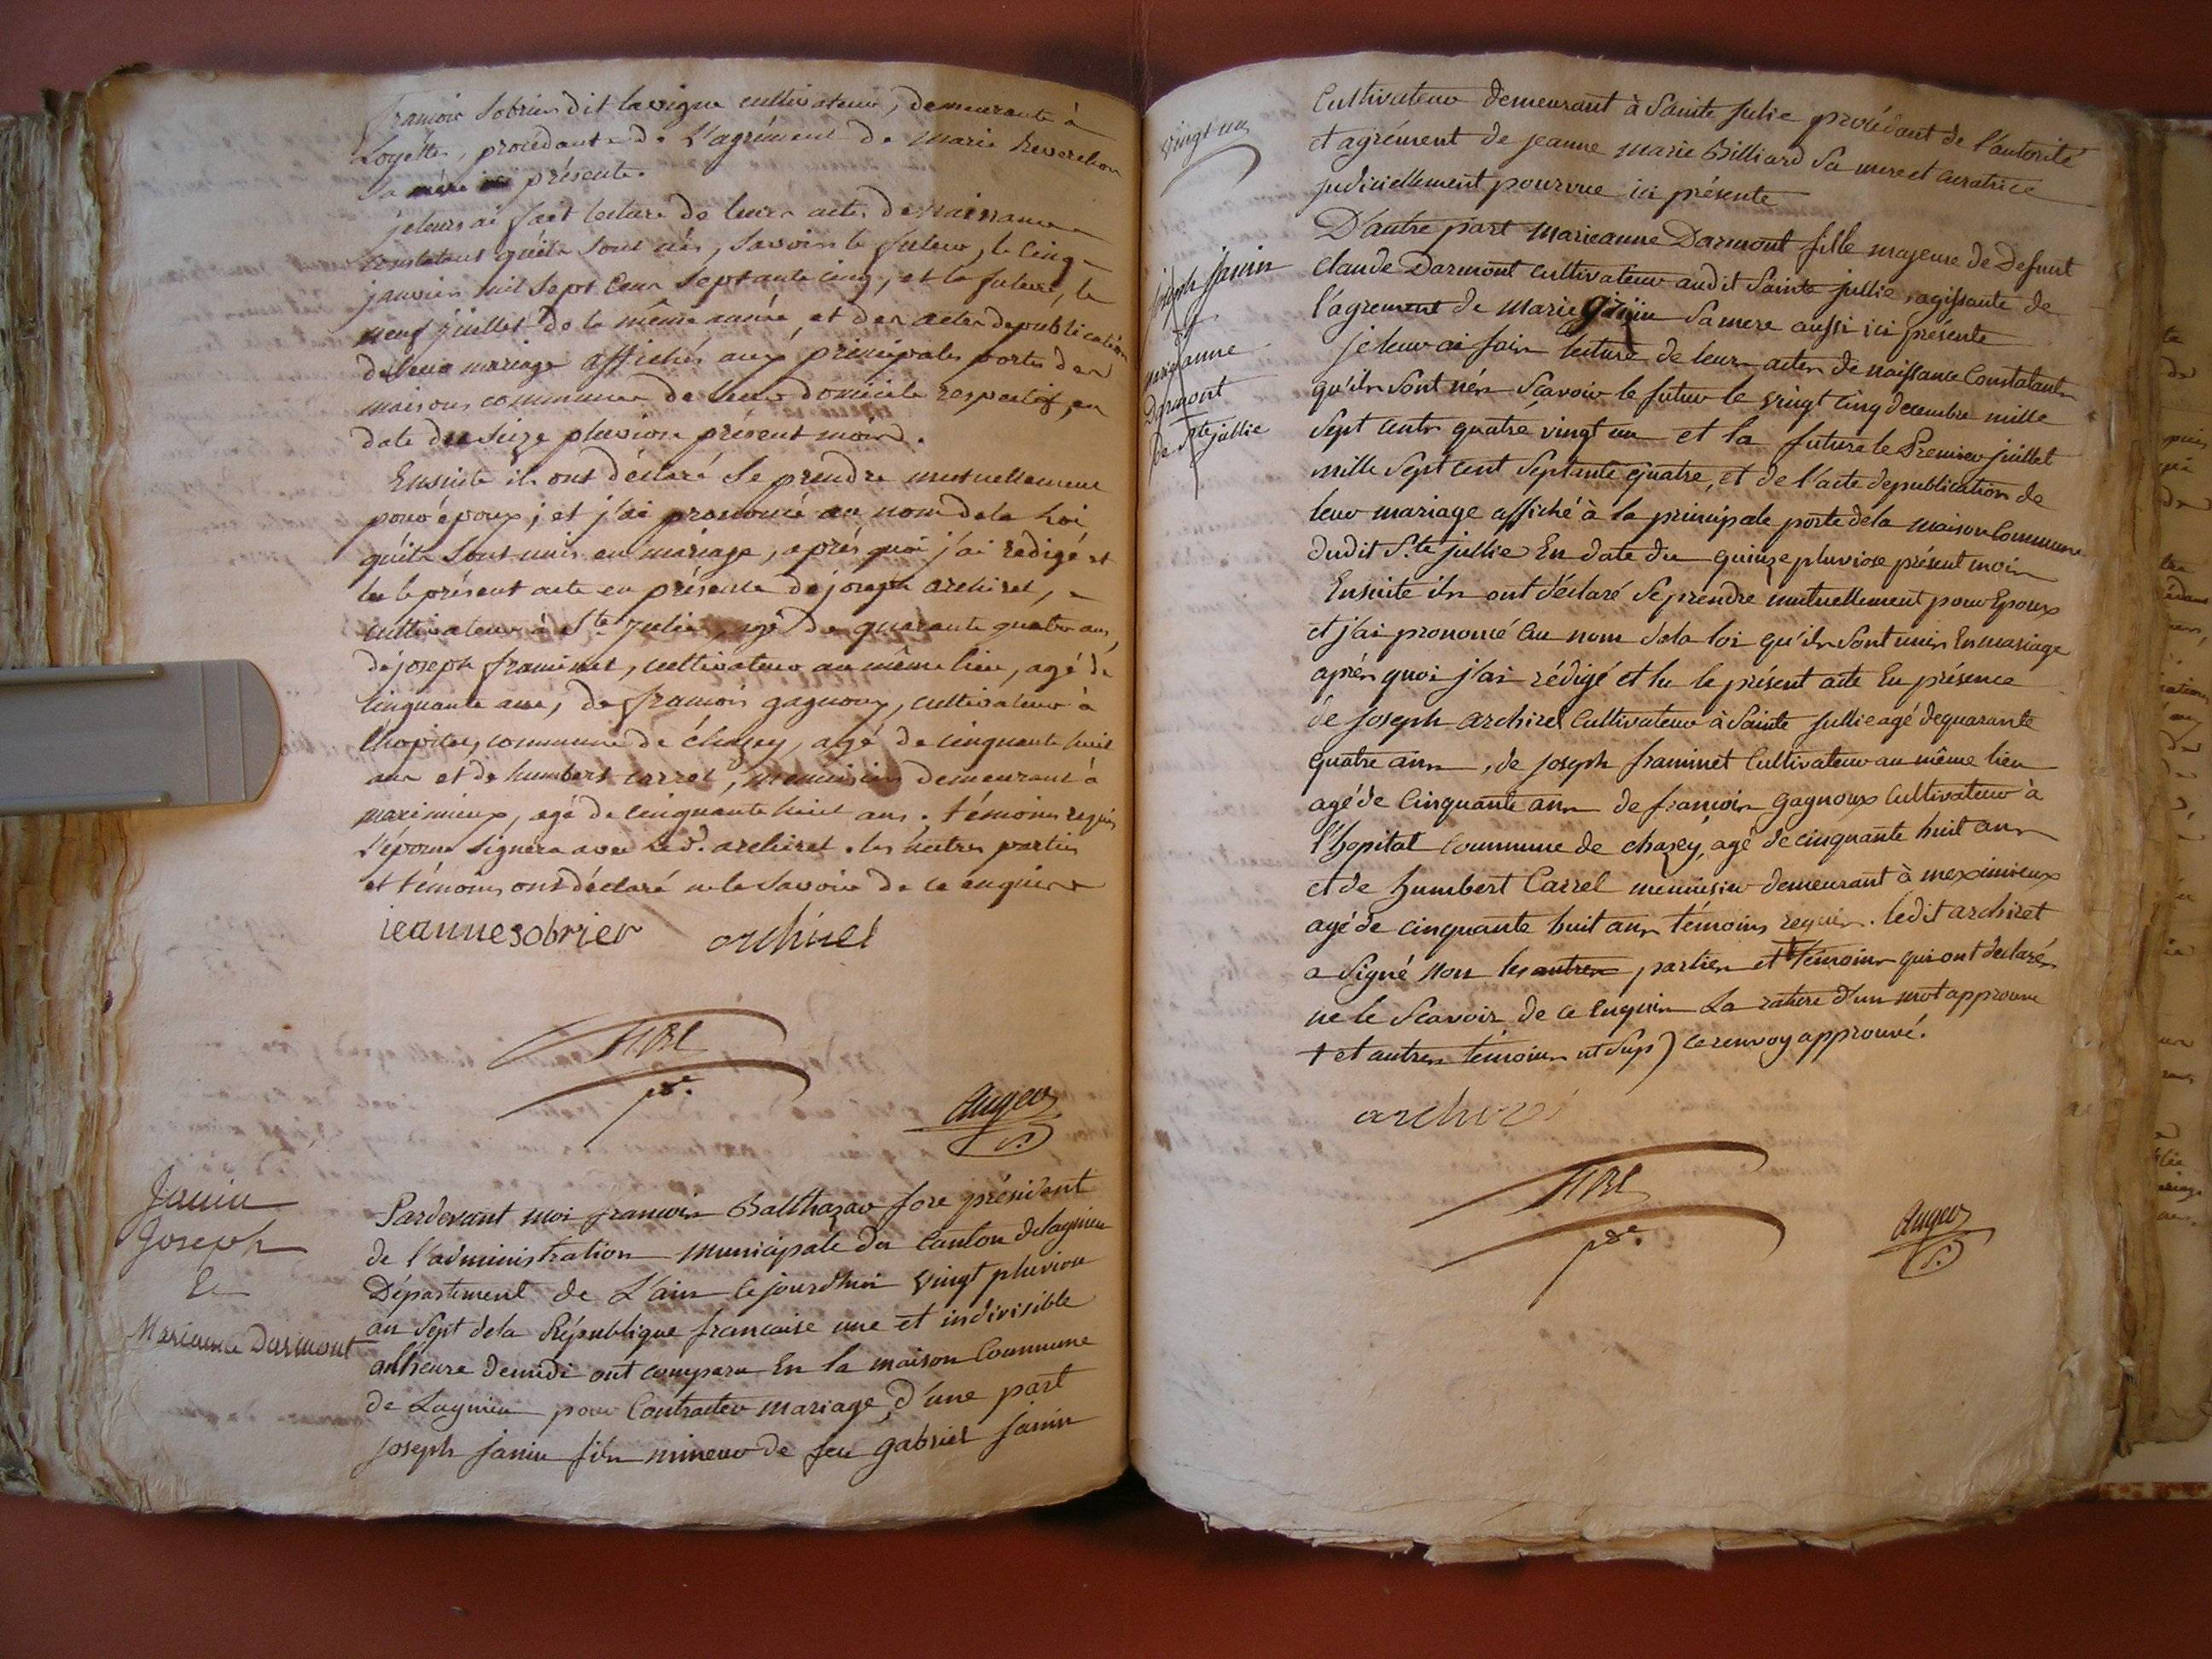 françois Sobrier dit lavigne cultivateur, demeurante à
Loyettes, procédante de L'agrément de marie Reverchon
sa mère présente.
je leurs ai fait lecture de leurs actes de naissance
constatans qu'ils sont nés, savoir le futeur, le cinq
janvier mil sept cens septante cinq, et la future, le
neuf juillet de la même année, et des actes de publication
de leur mariage affichés aux principales portes des
maisons communes de leur domicile respectif, en
date du seize pluviose présent mois.
Ensuite ils ont déclaré se prendre mutuellement
pour époux; et j'ai prononcé au nom de la Loi
qu'ils sont unis en mariage, aprés quoi j'ai redigé et
lu le présent acte en présence de joseph archirel,
cultivateur à Ste julie, agé de quarante quatre ans,
de joseph framinet, cultivateur au même lieu, agé de
cinquante ans, de françois gagnoux, cultivateur à
l'hopital, commune de chazey, agé de cinquante huit
ans et de humbert carrel, menuisier demeurant à
maximieux, agé de cinquante huit ans. témoins requis
L'épouse signéra avec led. archirel. les autres parties
et témoins ont déclaré ne le savoir de ce enquis
jeanne sobrier archirel
pdt.
Auger
Janin
Joseph
&
Marianne Darmont
Pardevant moi francois Balthazar fore président
de l'administration municipale du Canton de lagnieu
Département de L'ain cejourdhui vingt pluviose
an Sept dela République francaise une et indivisible
alheure demidi ont comparu En la maison Commune
de Lagnieu pour Contracter mariage, d'une part
joseph janin fils mineur de feu gabriel janin
vingt un
joseph janin
et
marianne
Darmont
de Ste jullie
Cultivateur demeurant à Sainte Julie procédant de l'autorité
et agrément de jeanne marie Billiard Sa mere et curatrice
judiciellement pourvue ici présente
D'autre part marieanne Darmont fille majeure de Defunt
Claude Darmont cultivateur audit Sainte jullie, agissante de
l'agrement de marie Sa mere aussi ici présente
je leur ai fais lecture de leurs actes de naissance Constatants
qu'ils sont nés Scavoir le futur le vingt cinq decembre mille
Sept cents quatre vingt un et la future le Premier juillet
mille Sept cent Septante quatre, et de l'acte depublication de
leur mariage affiché à la principale porte dela maison Commune
dudit S.te jullie En date du quinze pluviose présent mois
Ensuite ils ont déclaré Se prendre mutuellement pour Epoux
et j'ai prononcé au nom dela loi qu'ils Sont unis En mariage
aprés quoi j'ai rédigé et lu le présent acte En présence
de joseph archirel Cultivateur à Sainte jullie agé dequarante
quatre ans, de joseph framinet Cultivateur au même lieu
agé de Cinquante ans de francois gagnoux Cultivateur à
l'hopital Commune de chazey, agé de cinquante huit ans
et de humbert Carrel menuisier demeurant à meximieux
agé de cinquante huit ans témoins requis. ledit archirel
a Signé non les autres parties et † témoins qui ont declarés
ne le Scavoir de ce Enquis La rature d'un mot approuvé
† et autres témoins ut Sup) ce renvoy approuvé.
archirel
pdt.
Auger